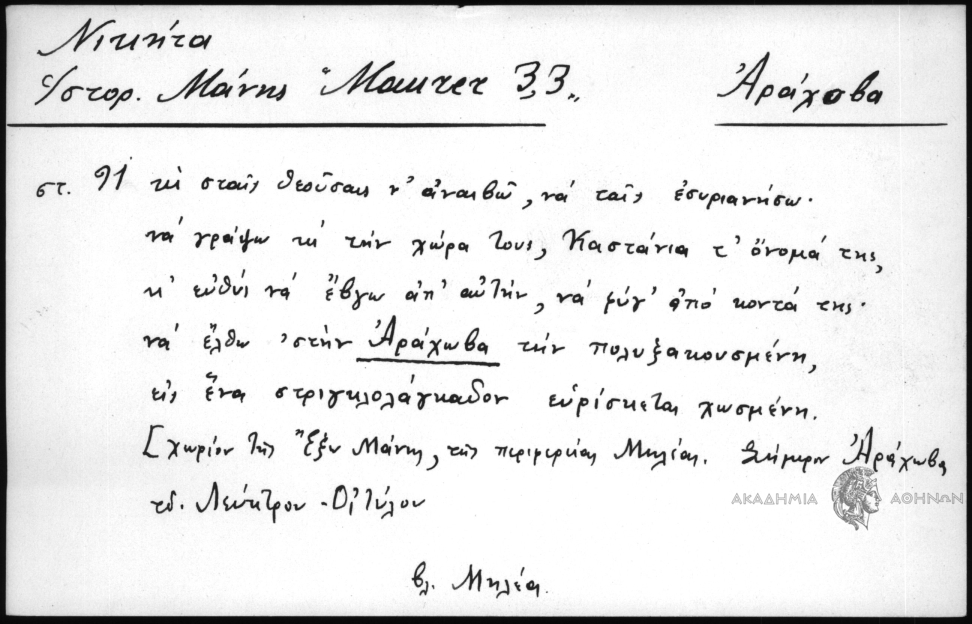 Νικήτα
ἱστορ. Μάνης "Maurer 3,3"
Ἀράχοβα
στ. 91 κὶ σταῖς θεούσαις ν' ἀναιβῶ, νά ταῖς ἐσυριανήσω.
νά γράψω κὶ τήν χώρα τους, Καστάνια τ' ὄνομά της,
κ' εὐθύς νά ἔβγω ἀπ' αὐτήν, νά φύγ' ἀπό κοντά της.
νά ἔλθω 'στήν Ἀράχωβα τήν πολυξακουσμένη,
εἰς ἕνα στριγκλολάγκαδον εὑρίσκεται χωσμένη.
[χωρίον τῆς Ἔξω Μάνης, τῆς περιφερείας Μηλέας. Σήμερον Ἀράχωβα
τδ. Λεύκτρον - Οἰτύλου
βλ. Μηλέα.
ΑΚΑΔΗΜΙΑ ΑΘΗΝΩΝ